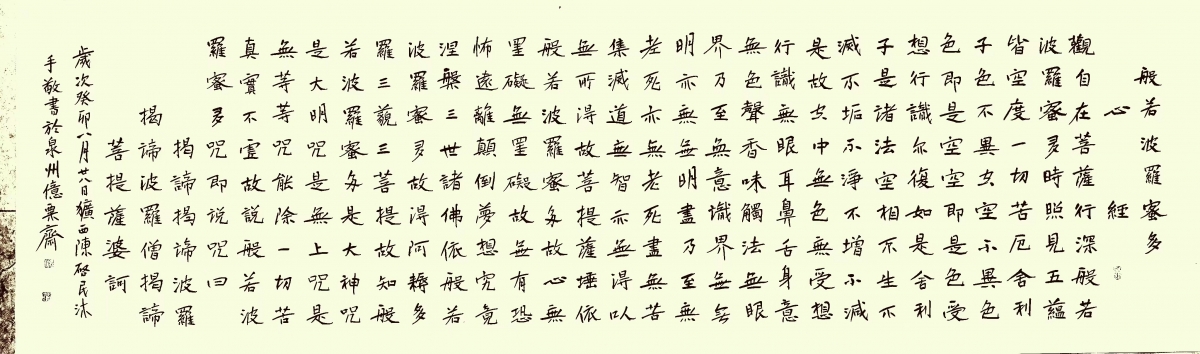 般若波羅蜜多
心經
觀自在菩薩行深般若
波羅蜜多時照見五蘊
皆空度一切苦厄舍利
子色不異空空不異色
色即是空空即是色受
想行識亦復如是舍利
子是諸法空相不生不
滅不垢不淨不增不減
是故空中無色無受想
行識無眼耳鼻舌身意
無色聲香味觸法無眼
界乃至無意識界無無
明亦無無明盡乃至無
老死亦無老死盡無苦
集滅道無智亦無得以
無所得故菩提薩埵依
般若波羅蜜多故心無
罣礙無罣礙故無有恐
怖遠離顛倒夢想究竟
涅槃三世諸佛依般若
波羅蜜多故得阿耨多
羅三藐三菩提故知般
若波羅蜜多是大神咒
是大明咒是無上咒是
無等等咒能除一切苦
真實不虛故說般若波
羅蜜多咒即說咒曰
揭諦揭諦波羅
揭諦波羅僧揭諦
菩提薩婆訶
歲次癸卯八月廿八日獷西陳啓民沐
手敬書於泉州億粟齋